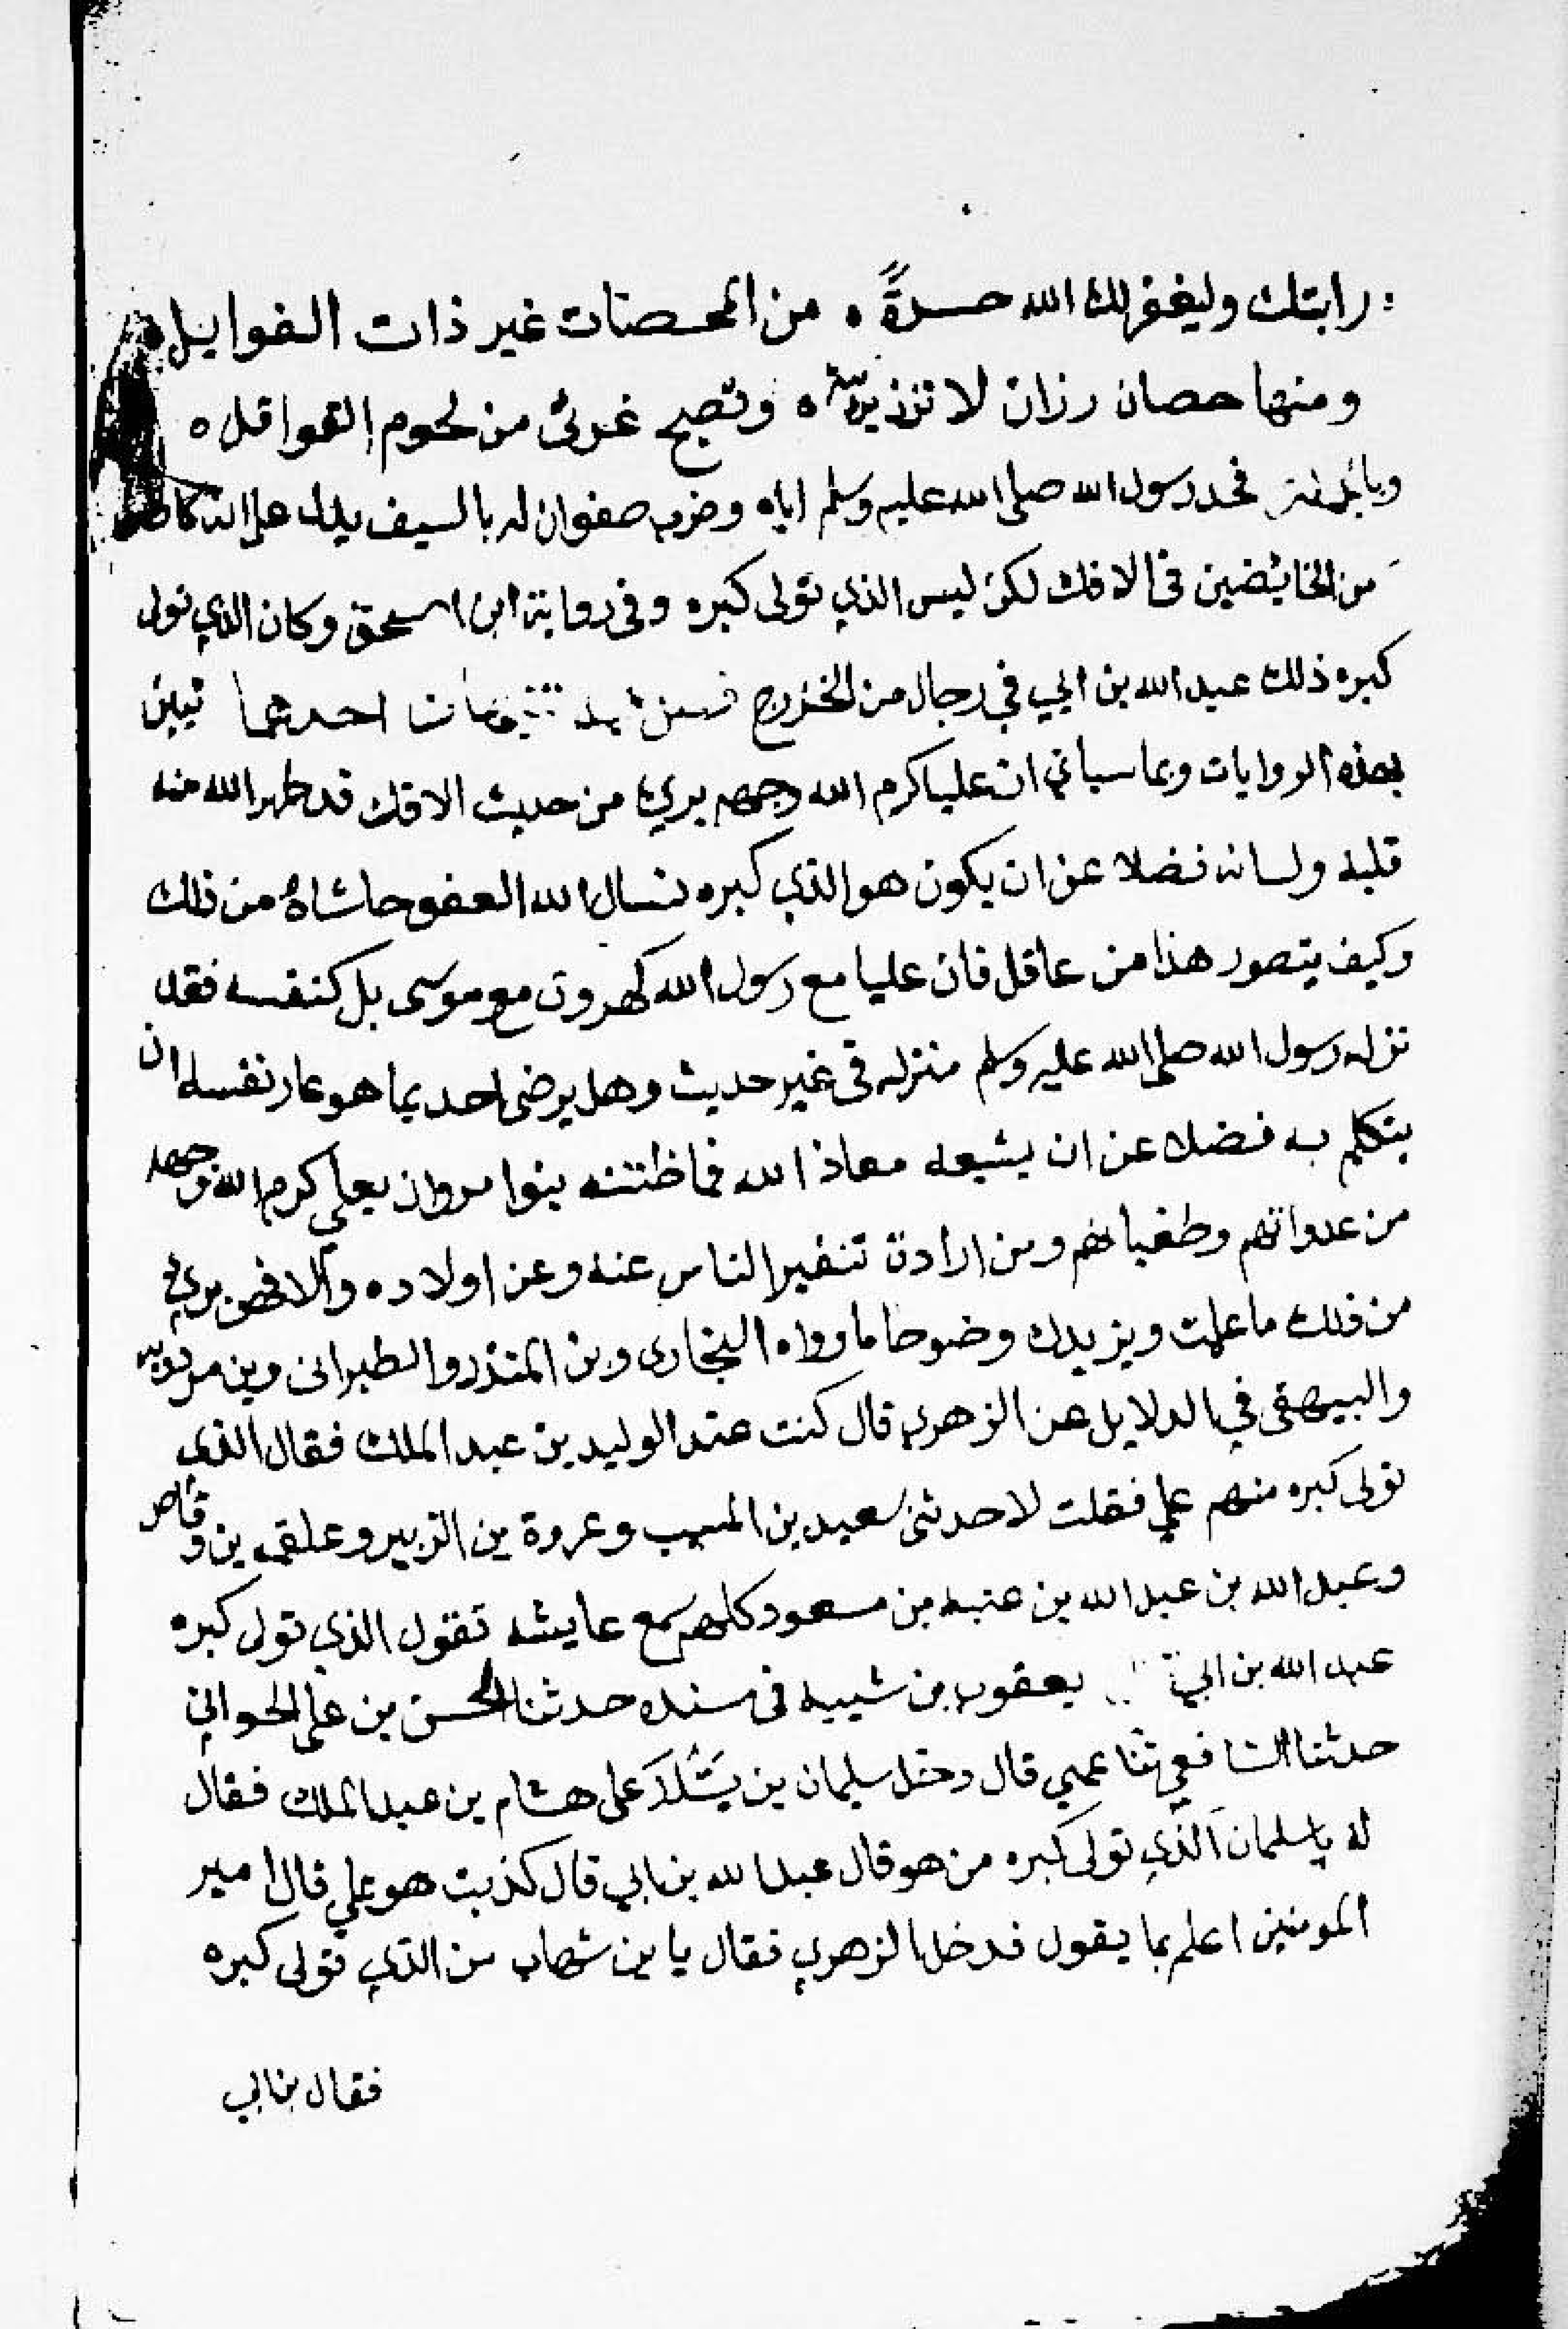 رايتك وليغفر لك الله حرةً ٥ من المحصنات غير ذات الغوايل ٥
ومنها حصان رزان لا تزن بريبة ٥ وتصبح غرثى من لحوم الغوافل ٥
وبالجملة فحد رسول الله صلى الله عليه وسلم اياه وضربه صفوان له بالسيف يدل على انه كان
من الخايضين في الافك لكن ليس الذي تولى كبره وفي رواية ابن اسحق وكان الذي تولى
كبره ذلك عبد الله بن ابي في رجال من الخزرج احدهما تبين
بهذه الروايات وبما سياتي ان عليا كرم الله وجهه بريء من حديث الافك قد طهر الله منه
قلبه ولسانه فضلا عن ان يكون هو الذي كبره نسال الله العفو حاشاه من ذلك
وكيف يتصور هذا من عاقل فان عليا مع رسول الله كهرون مع موسى بل كنفسه فقد
نزله رسول الله صلى الله عليه وسلم منزله في غير حديث وهل يرضى احد بما هو عار نفسه ان
يتكلم به فضلا عن ان يشيعه معاذ الله فما ظنته بنوا مروان بعلي كرم الله وجهه
من عدواتهم وطغيانهم ومن ارادة تنفير الناس عنه وعن اولاده والا فهو بريء
من ذلك ما علمت ويزيدك وضوحا ما رواه البخاري وبن المنذر والطبراني وبن مردويه
والبيهقي في الدلايل عن الزهري قال كنت عند الوليد بن عبد الملك فقال الذي
تولى كبره منهم علي فقلت لا حدثني سعيد بن المسيب وعروة بن الزبير وعلقمه بن وقاص
وعبد الله بن عبد الله بن عتبه بن مسعود كلهم سمع عايشه تقول الذي تولى كبره
عبد الله بن ابي يعقوب بن شيبه في مسنده حدثنا الحسن بن علي الحلواني
حدثنا الشافعي ثنا عمي قال دخل سليمان بن يَسَار على هشام بن عبد الملك فقال
له يا سليمان الذي تولى كبره من هو قال عبد الله بن ابي قال كذبت هو علي قال امير
المومنين اعلم بما يقول فدخل الزهري فقال يا بن شهاب من الذي تولى كبره
فقال بن ابي